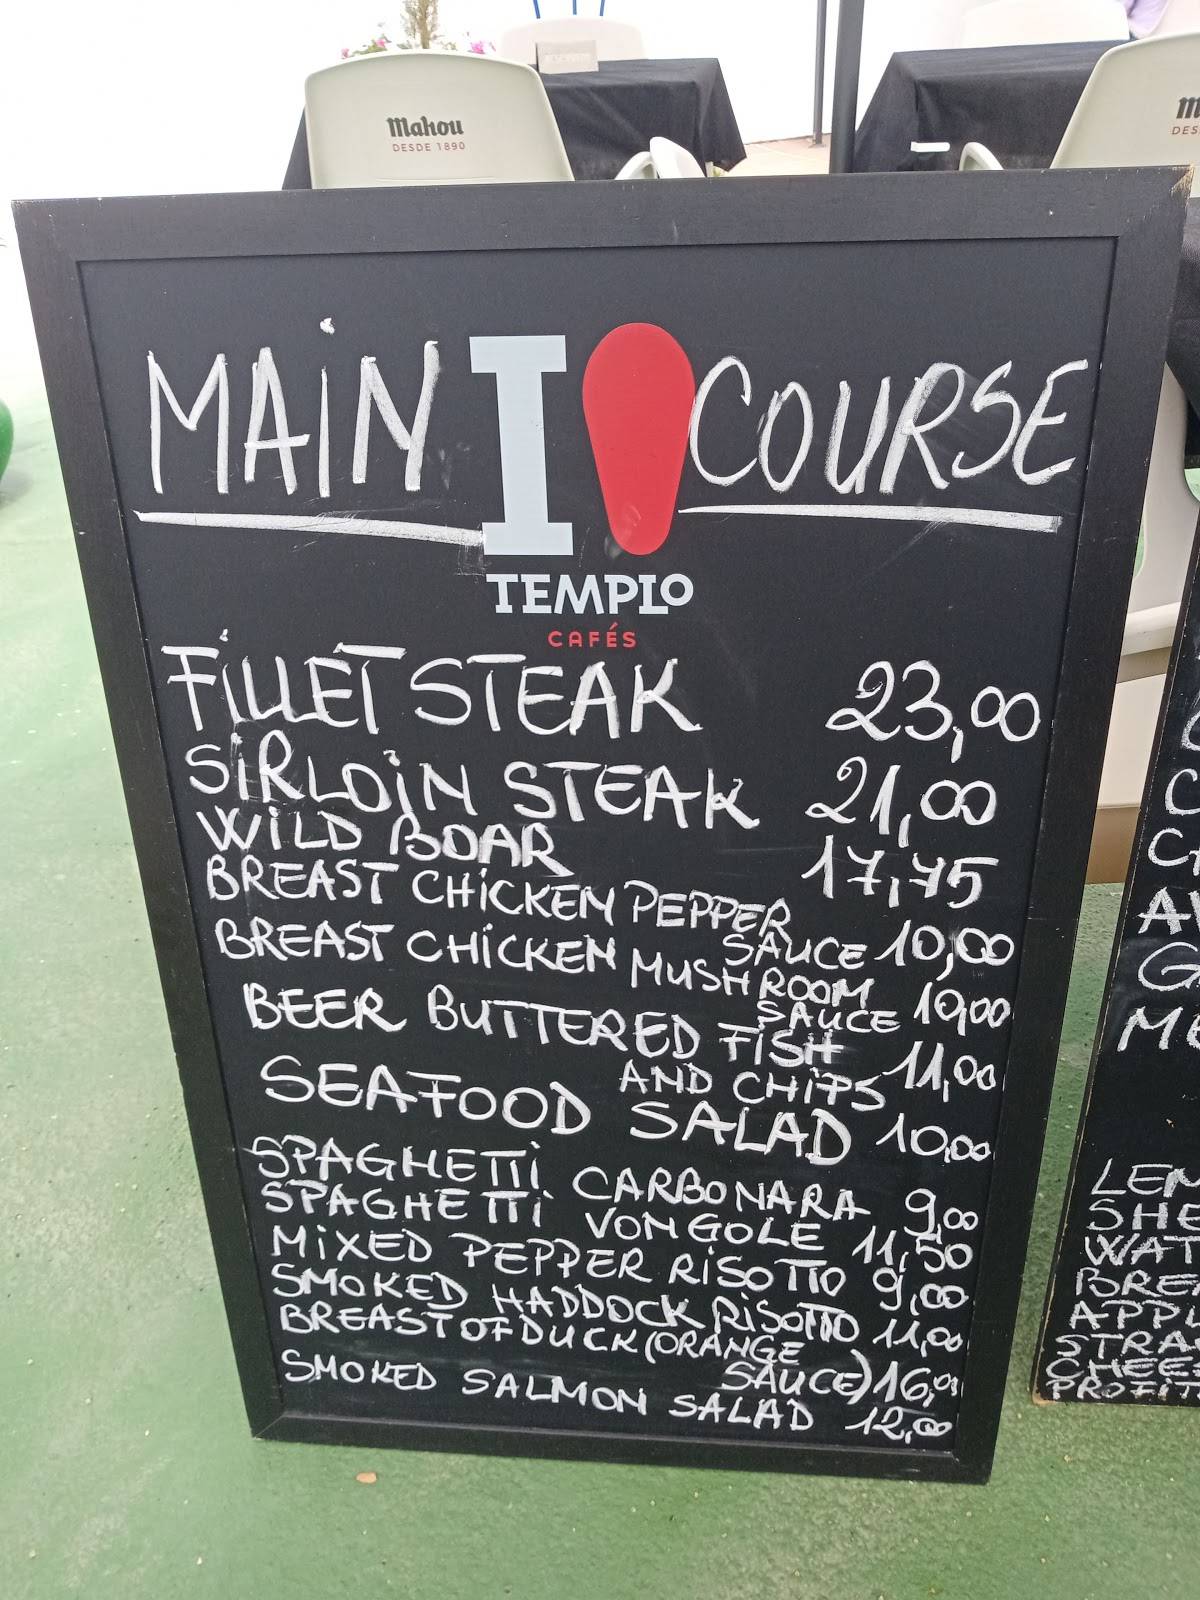 Mahou
DESDE 1890
MAIN I COURSE
TEMPLO
CAFÉS
FILLET STEAK 23,00
SIRLOIN STEAK 21,00
WILD BOAR 17,75
BREAST CHICKEN PEPPER
SAUCE 10,00
BREAST CHICKEN MUSHROOM
SAUCE 10,00
BEER BUTTERED FISH
AND CHIPS 11,00
SEAFOOD SALAD 10,00
SPAGHETTI CARBONARA 9,00
SPAGHETTI VONGOLE 11,50
MIXED PEPPER RISOTTO 9,00
SMOKED HADDOCK RISOTTO 11,00
BREAST OF DUCK (ORANGE
SAUCE) 16,00
SMOKED SALMON SALAD 12,00